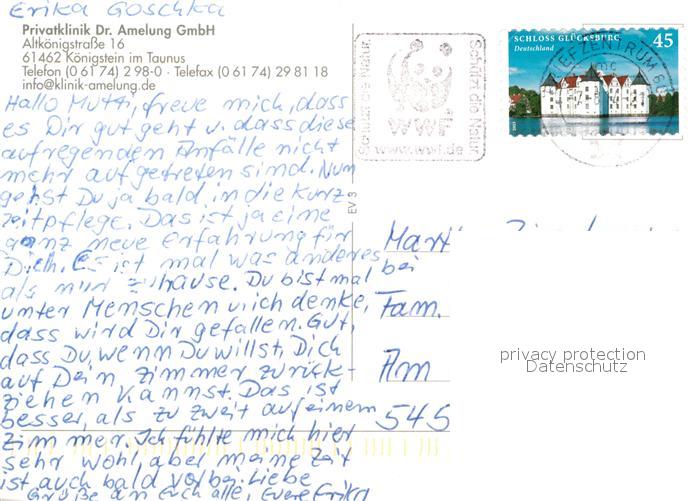 Erika Goschka
Privatklinik Dr. Amelung GmbH
Altkönigstraße 16
61462 Königstein im Taunus
Telefon (0 61 74) 2 98-0 · Telefax (0 61 74) 29 81 18
info@klinik-amelung.de
Hallo Mutti, freue mich, dass
es Dir gut geht u. dass diese
aufregenden Anfälle nicht
mehr aufgetreten sind. Nun
gehst Du ja bald in die Kurz-
zeitpflege. Das ist ja eine
ganz neue Erfahrung für
Dich. Es ist mal was anderes
als nur zuhause. Du bist mal
unter Menschen u. ich denke,
dass wird Dir gefallen. Gut,
dass Du, wenn Du willst, Dich
auf Dein Zimmer zurück-
ziehen kannst. Das ist
besser, als zu zweit auf einem
Zimmer. Ich fühlte mich hier
sehr wohl, aber meine Zeit
ist auch bald vorbei. Liebe
Grüße an Euch alle, Euere Erika
EV 3
Schützt die Natur.
WWF
www.wwf.de
Schützt die Natur.
SCHLOSS GLÜCKSBURG 45
Deutschland
BRIEFZENTRUM
bei
Fam.
Am
545
privacy protection
Datenschutz